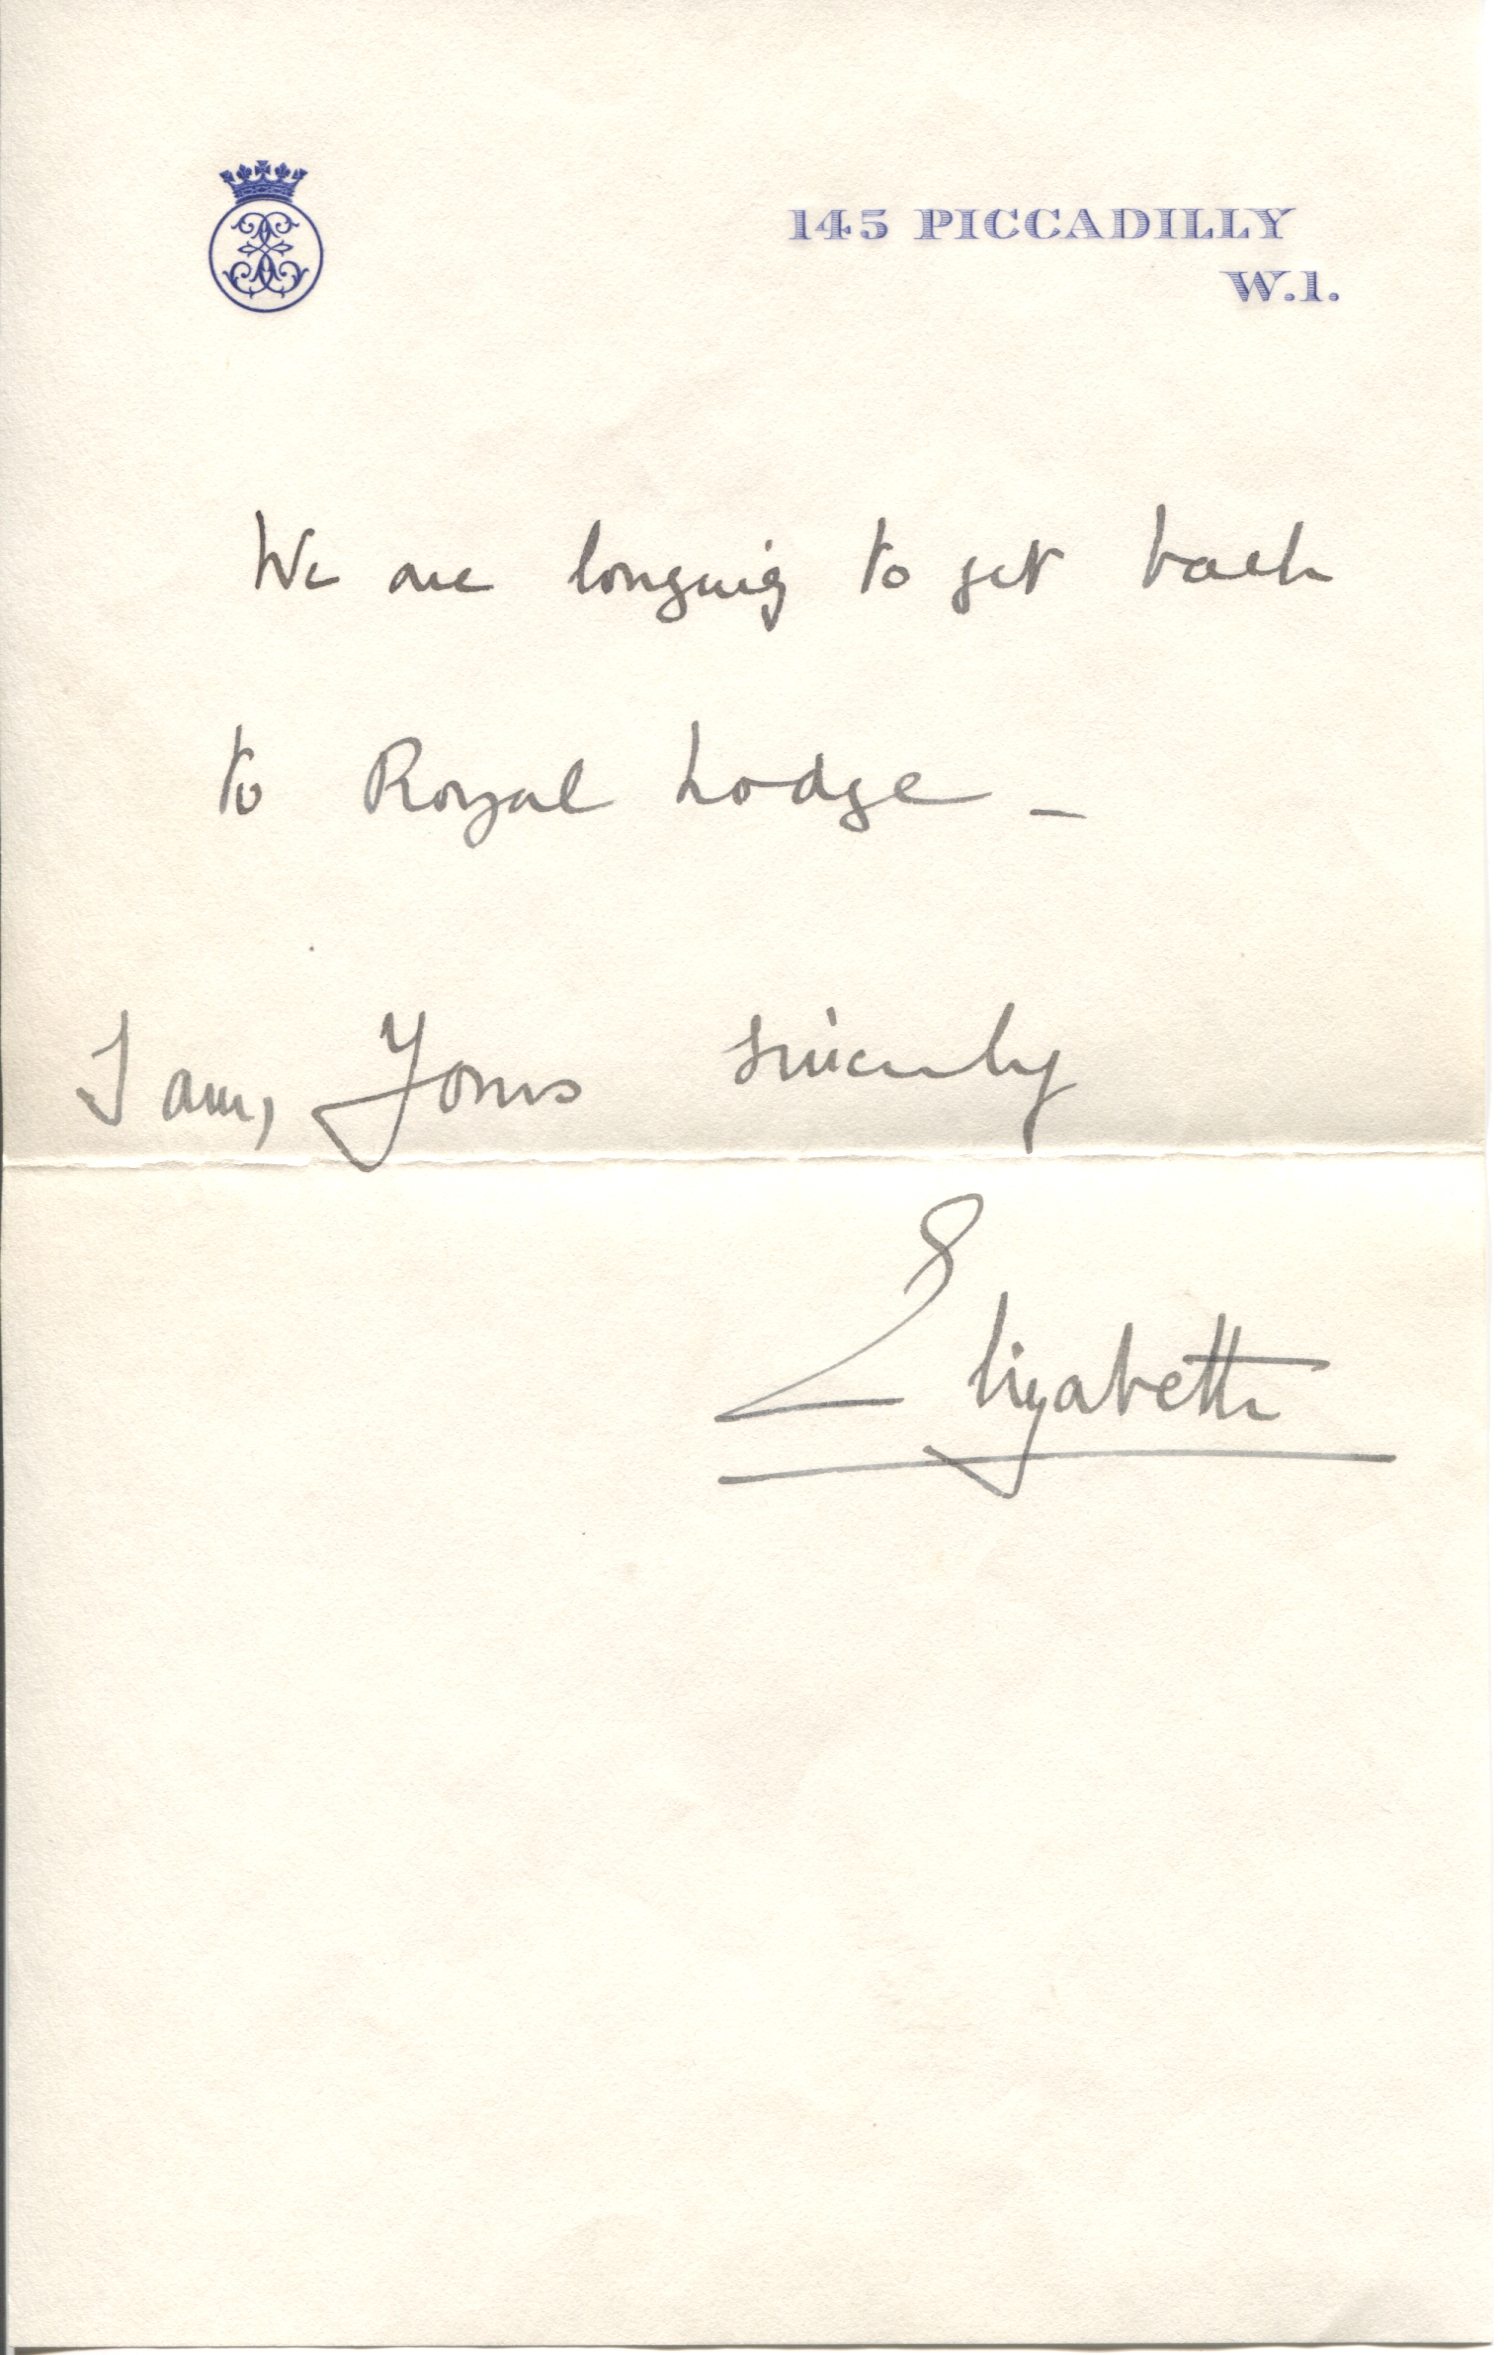 145 PICCADILLY
W.1.
We are longing to get back
to Royal Lodge _
I am, Yours sincerely
Elizabeth